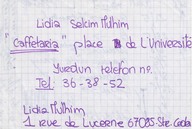 Lidia Selcim Mulhim
"Caffetaria" place de L'Universite
Yurdun telefon nº.
Tel: 36-38-52
Lidia Mulhim
1 rue de Lucerne 67085 Ste. Cedex